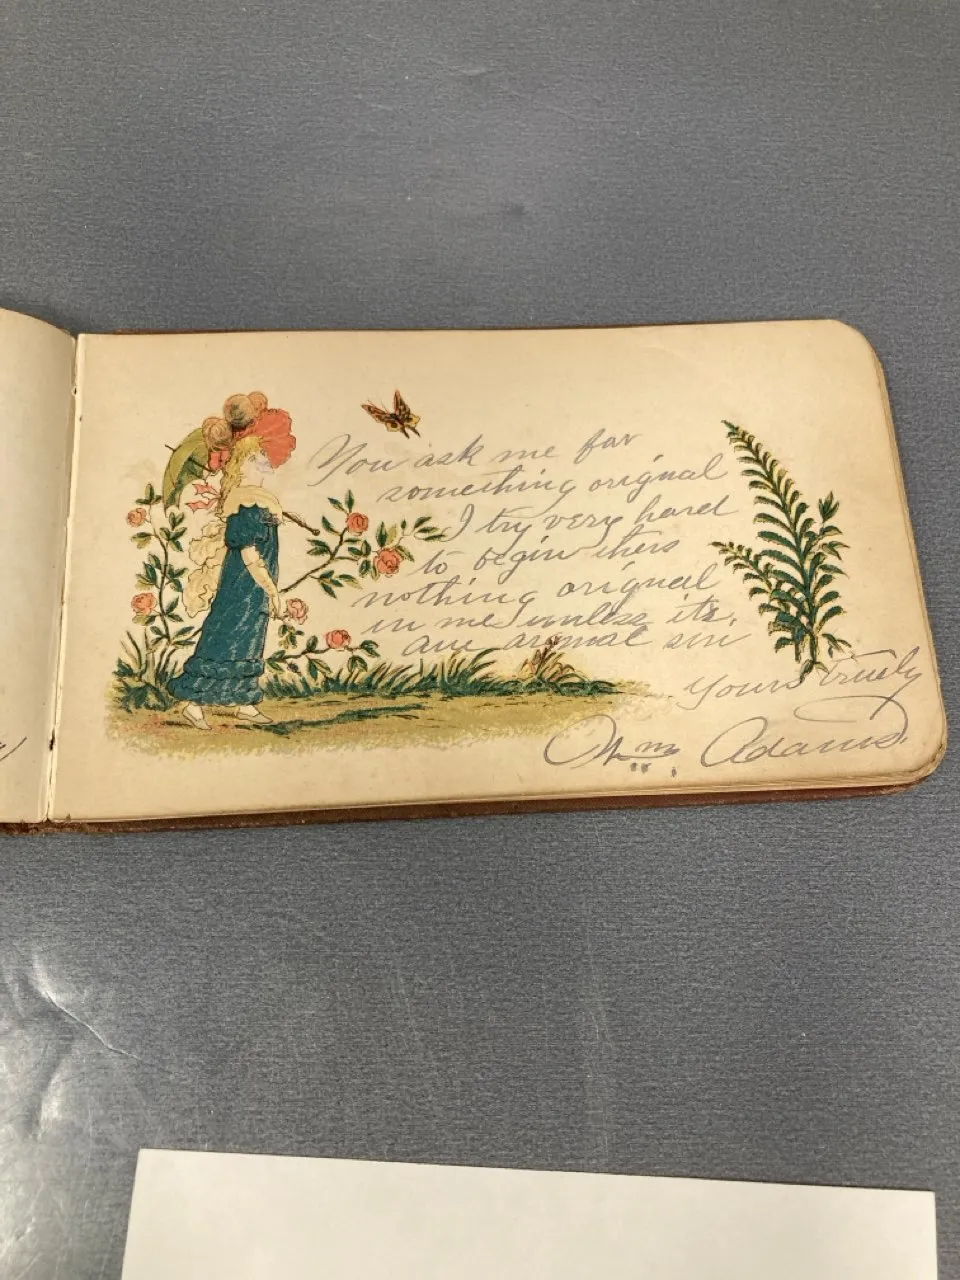 You ask me for
something orignal
I try very hard
to begin thers
nothing orignal
in me unless its,
an sin
Yours Truly
Wm. Adams.